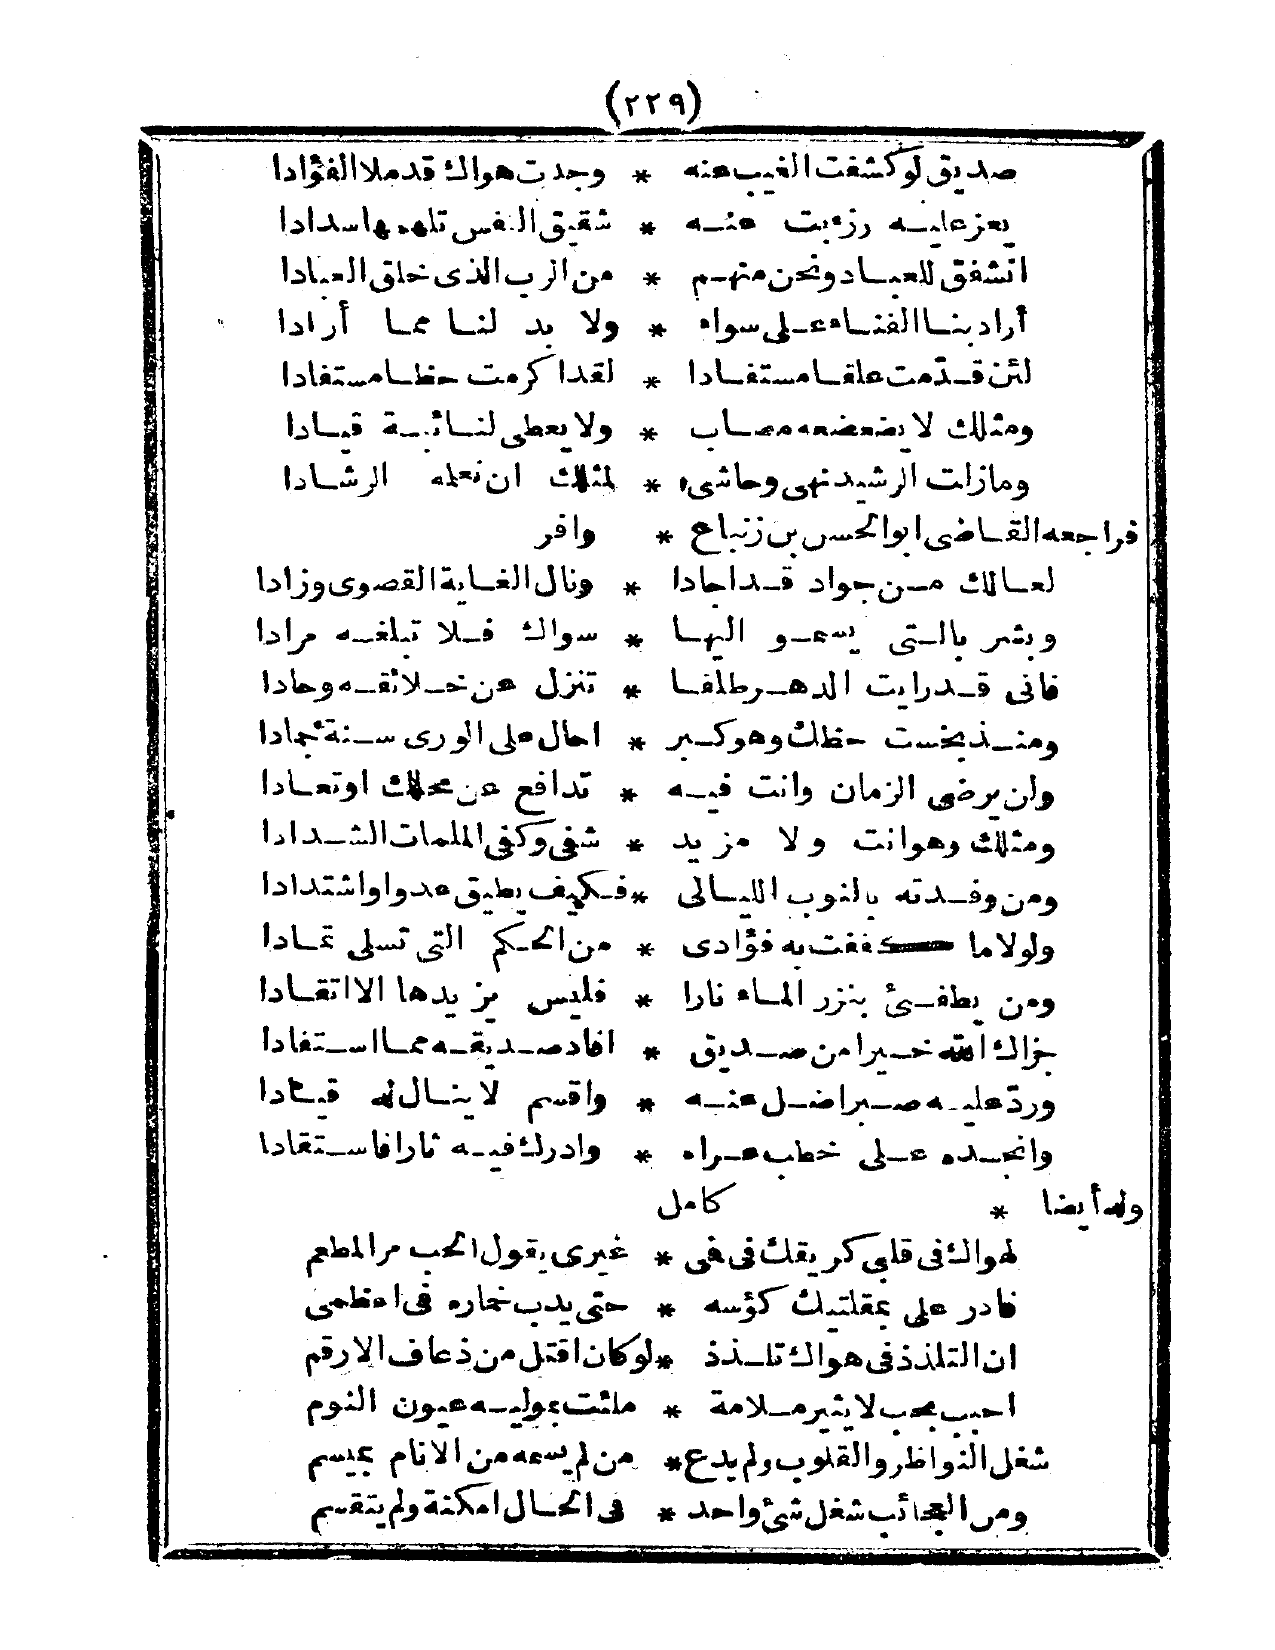 (٢٢٩)
صديق لو كشفت الغيب عنه * وجدت هواك قد ملا الفؤادا
يعز عليه رزءبت عنه * شقيق النفس تلهمها سدادا
اتشفق للعباد ونحن منهم * من الرب الذى خلق العبادا
أراد بنا الفناء على سواء * ولا بد لنا مما أرادا
لئن قدّمت علقا مستفادا * لقد اكرمت حظا مستفادا
ومثلك لا يضعضعه مصاب * ولا يعطى لنائبة قيادا
ومازلت الرشيد نهى وحاشىء * لمثلك ان نعلمه الرشادا
فراجعه القاضى ابو الحسن بن زنباع * وافر
لعالك من جواد قد اجادا * ونال الغاية القصوى وزادا
وبشر بالتى يسمو اليها * سواك فلا تبلغه مرادا
فانى قد رايت الدهر طلقا * تنزل عن خلائقه وحادا
ومنذ بخست حظك وهو كبر * احال على الورى سنة جمادا
وان يرضى الزمان وانت فيه * تدافع عن محلك او تعادا
ومثلك وهو انت ولا مزيد * شفى وكفى الملمات الشدادا
ومن وفدته بالنوب الليالى * فكيف يطيق عدوا واشتدادا
ولولا ما كففت به فؤادى * من الحكم التى تسلى تمادا
ومن يطفئ بنزر الماء نارا * فليس يزيدها الا اتقادا
جزاك الله خيرا من صديق * افاد صديقه مما استفادا
وردّ عليه صبرا ضل عنه * واقسم لا ينال له قيادا
وانجده على خطب عراه * وادرك فيه ثارا فاستقادا
وله أيضا * كامل
لهواك فى قلبى كريقك فى فمى * غيرى يقول الحب مر المطعم
فادر على بمقلتيك كؤسه * حتى يدب خماره فى اعظمى
ان التلذذ فى هواك تلذذ * لو كان اقتل من ذعاف الارقم
احبب بحب لا يثير ملامة * ملئت بوليه عيون النوم
شغل النواظر والقلوب ولم يدع * من لم يسمه من الانام بميسم
ومن العجائب شغل شئ واحد * فى الحال امكنة ولم يتقسم